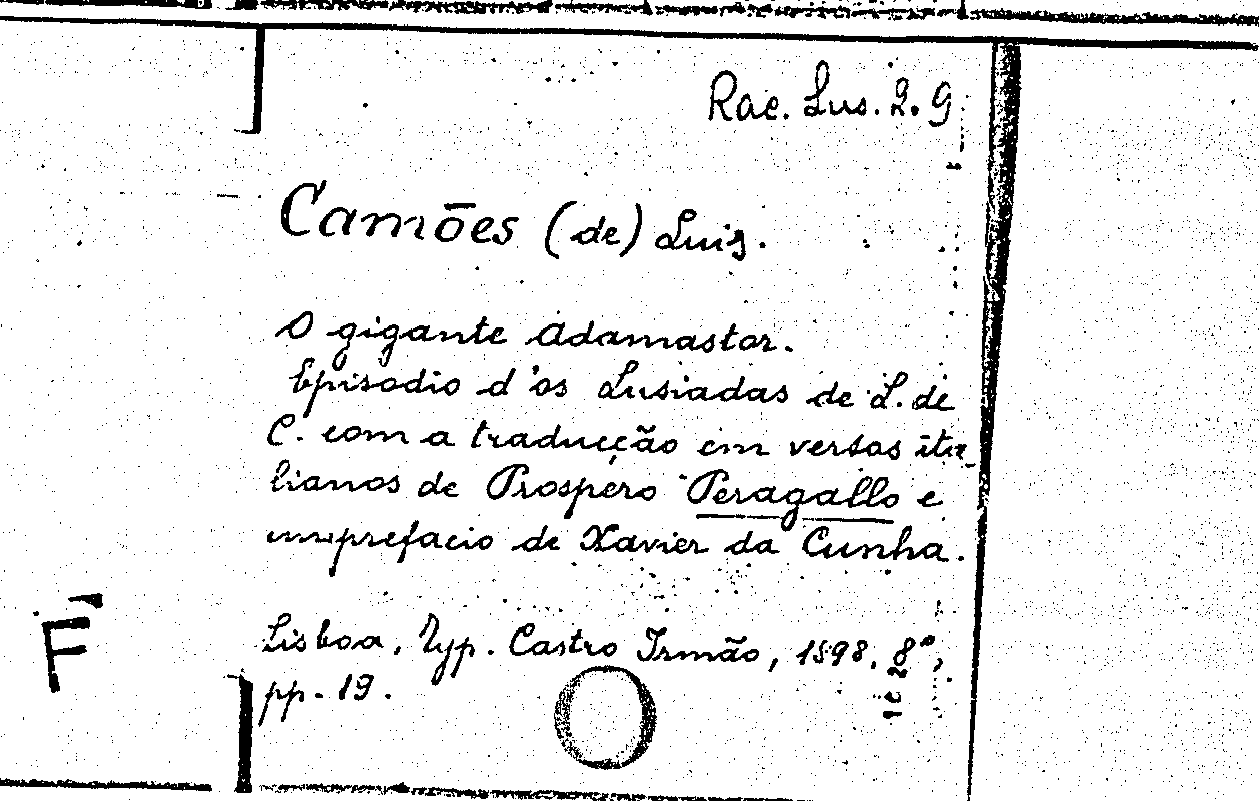 Rac. Lus. 2. 9
Camões (de) Luis.
O gigante Adamastor.
Episodio d'os Lusiadas de L. de
C. com a traducção em versos ita-
lianos de Prospero Peragallo e
um prefacio de Xavier da Cunha.
Lisboa, Typ. Castro Irmão, 1898. 8º,
pp. 19.
F